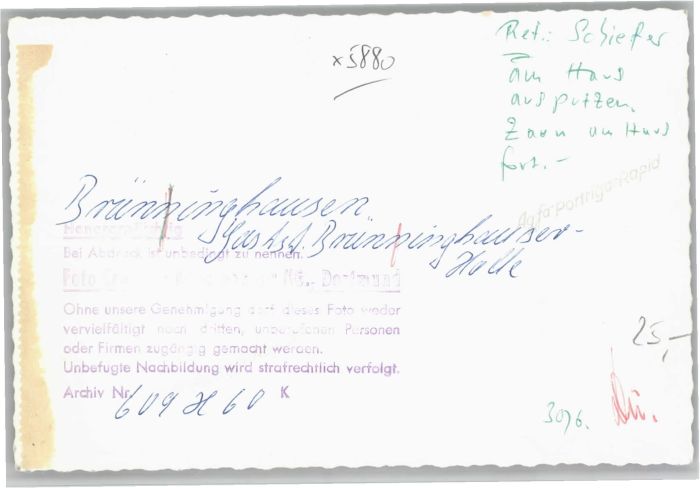 x5880
Ret.: Schiefer
am Haus
ausputzen.
Zaun um Haus
fort.-
Agfa-Portriga-Rapid
Brünninghausen.
Gastst. Brünninghauser-
Halle
Honorarpflichtig
Bei Abdruck ist unbedingt zu nennen:
Foto KG., Dortmund
Ohne unsere Genehmigung darf dieses Foto weder
vervielfältigt noch dritten, unberufenen Personen
oder Firmen zugängig gemacht werden.
Unbefugte Nachbildung wird strafrechtlich verfolgt.
Archiv Nr. 609 H 60 K
25,-
30/6.